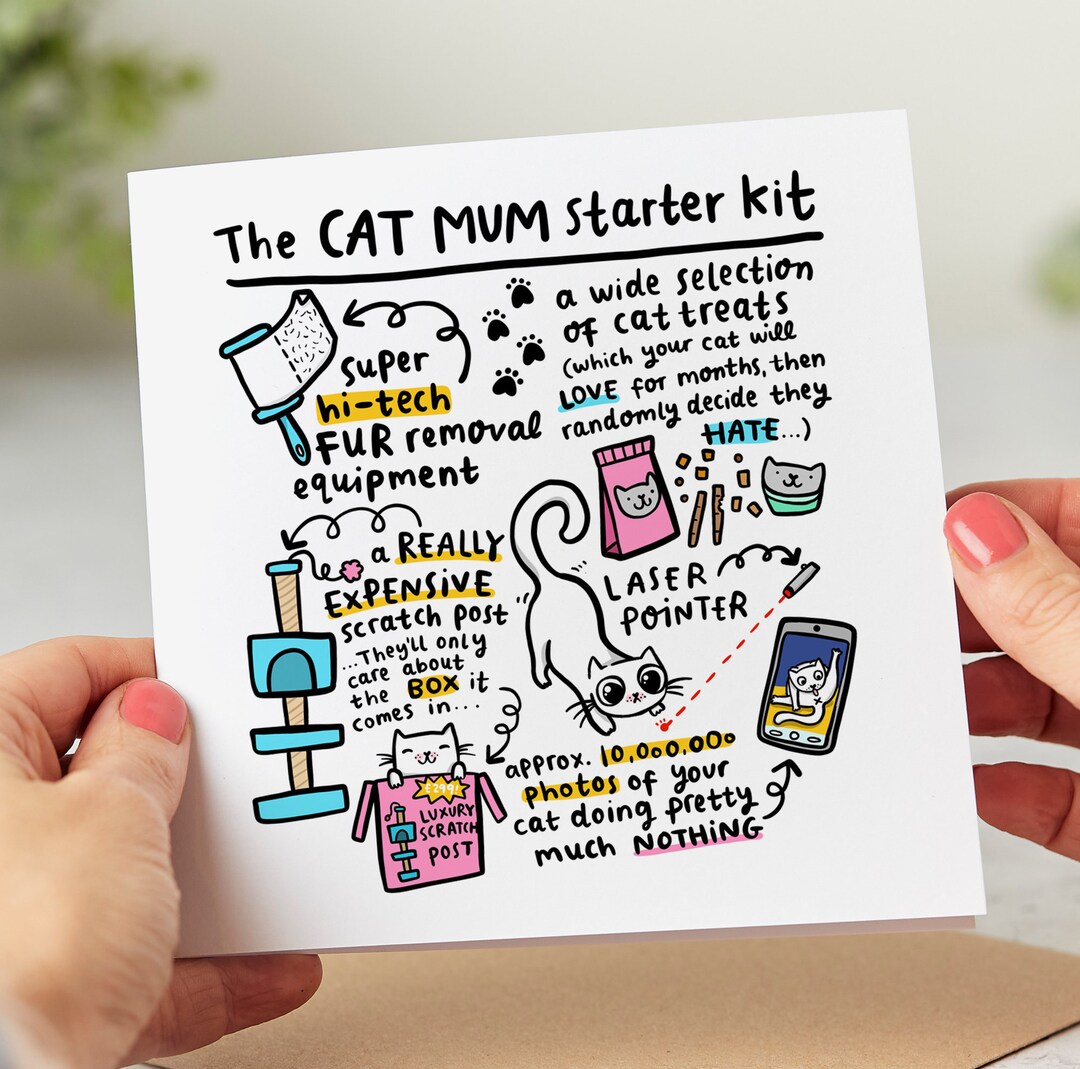 The CAT MUM starter kit
super
hi-tech
FUR removal
equipment
a wide selection
of cat treats
(which your cat will
LOVE for months, then
randomly decide they
HATE...)
a REALLY
EXPENSIVE
scratch post
...They'll only
care about
the BOX it
comes in...
£299!
LUXURY
SCRATCH
POST
LASER
POINTER
approx. 10,000,000
photos of your
cat doing pretty
much NOTHING